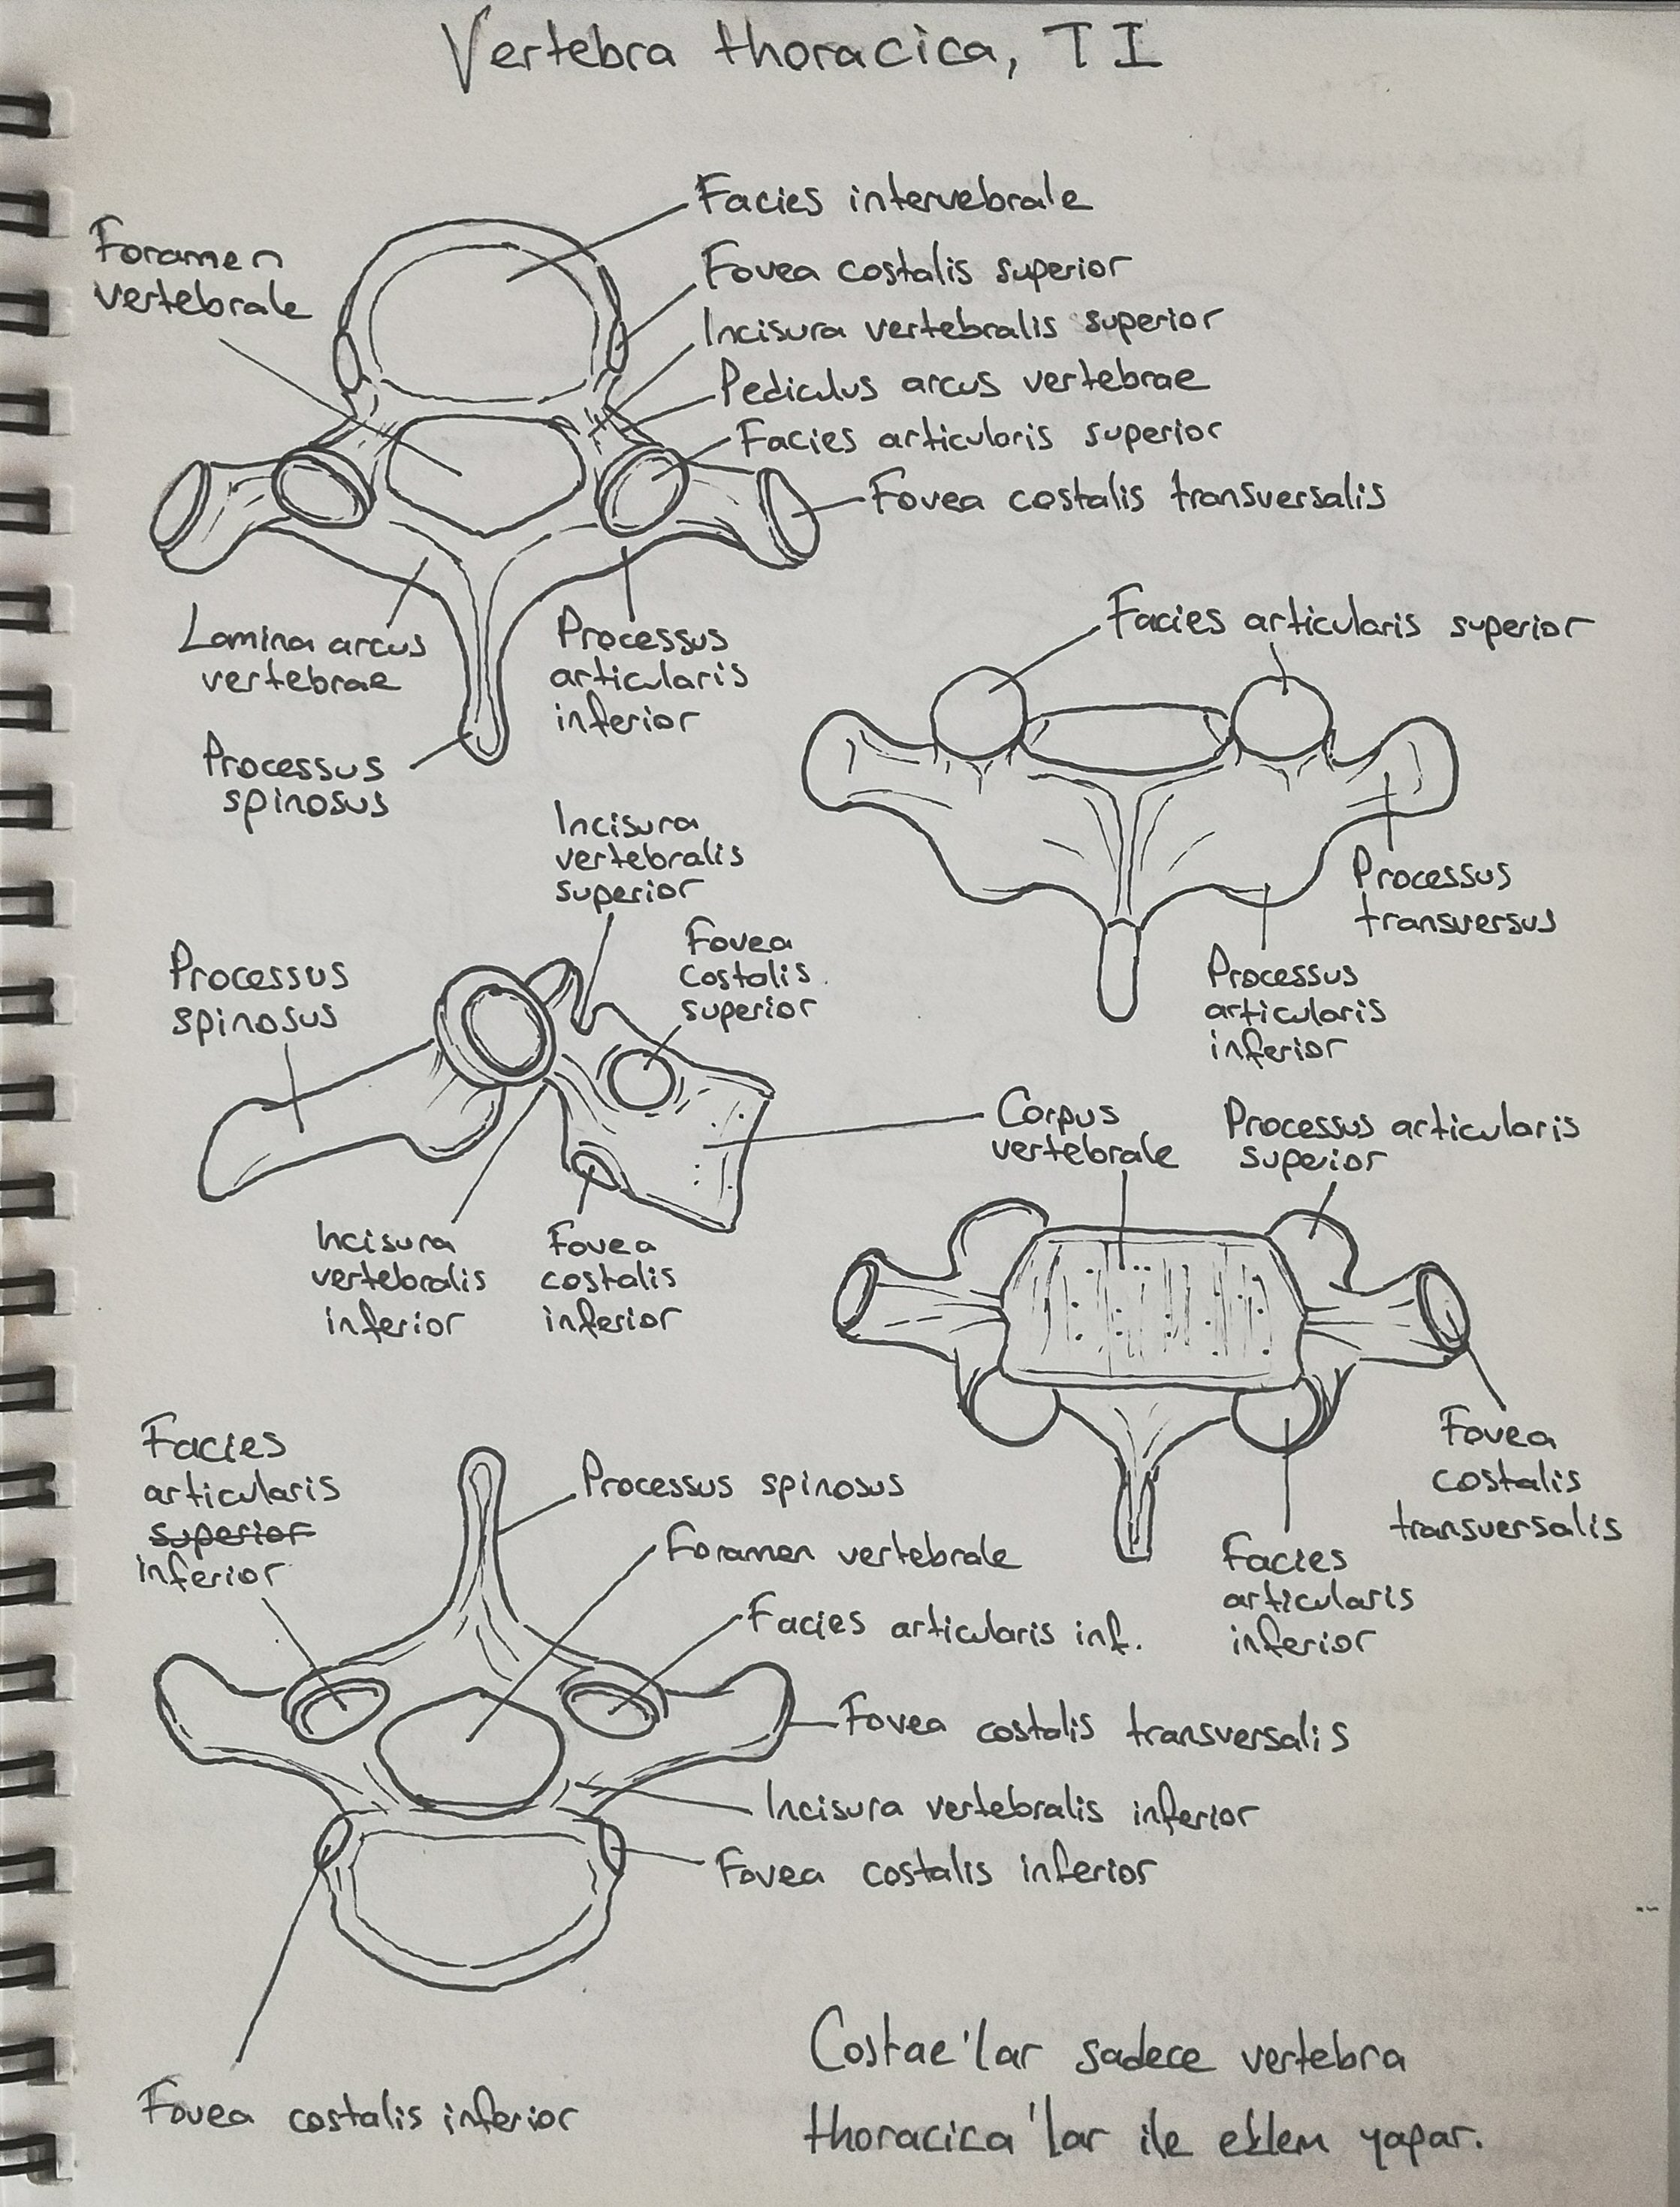 Vertebra thoracica, T I
Facies intervebrale
Foramen
vertebrale
Fovea costalis superior
Incisura vertebralis superior
Pediculus arcus vertebrae
Facies articularis superior
Fovea costalis transversalis
Lamina arcus
vertebrae
Processus
articularis
inferior
Processus
spinosus
Facies articularis superior
Processus
transversus
Processus
articularis
inferior
Incisura
vertebralis
superior
Fovea
costalis
superior
Processus
spinosus
Corpus
vertebrale
Incisura
vertebralis
inferior
Fovea
costalis
inferior
Processus articularis
superior
Fovea
costalis
transversalis
Facies
articularis
inferior
Facies
articularis
superior
inferior
Processus spinosus
Foramen vertebrale
Facies articularis inf.
Fovea costalis transversalis
Incisura vertebralis inferior
Fovea costalis inferior
Fovea costalis inferior
Costae'lar sadece vertebra
thoracica'lar ile eklem yapar.